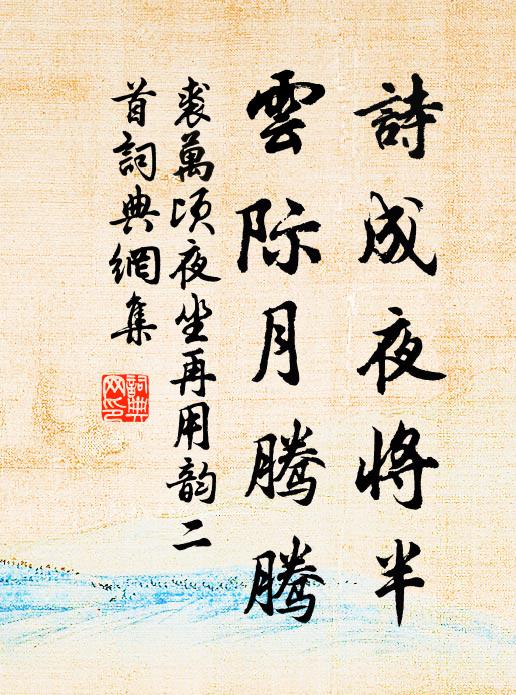 詩成夜将半
雲际月腾腾
裘萬頃夜坐再用韵二
首詞典網集
詞典
网印